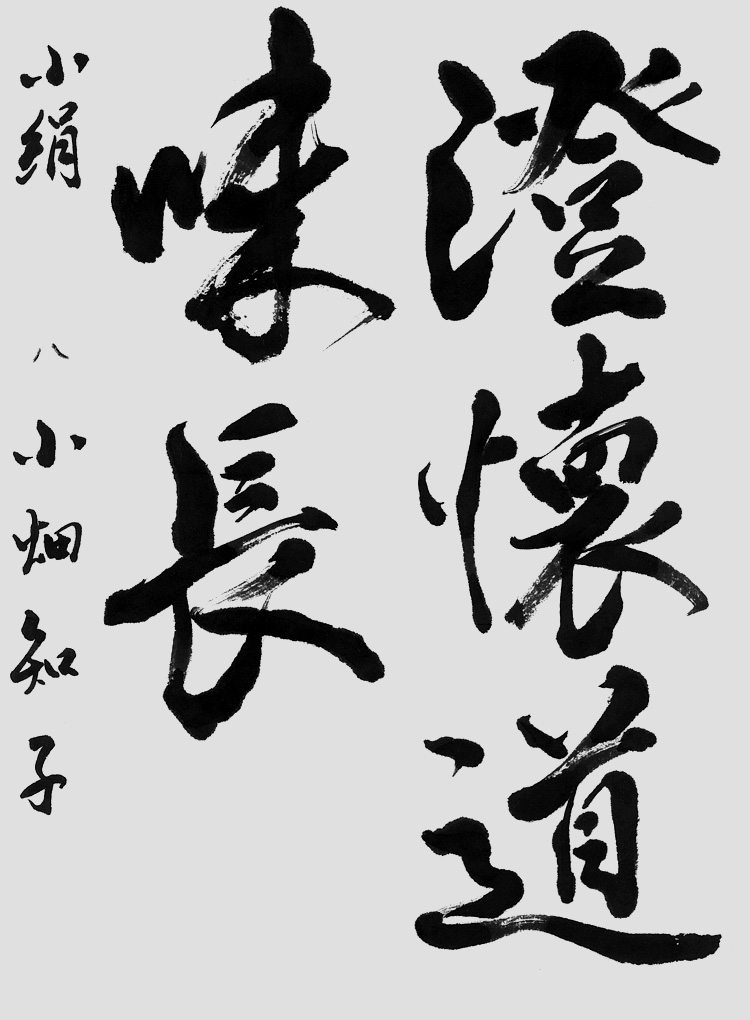 澄懐道
味長
小絹 八 小畑知子